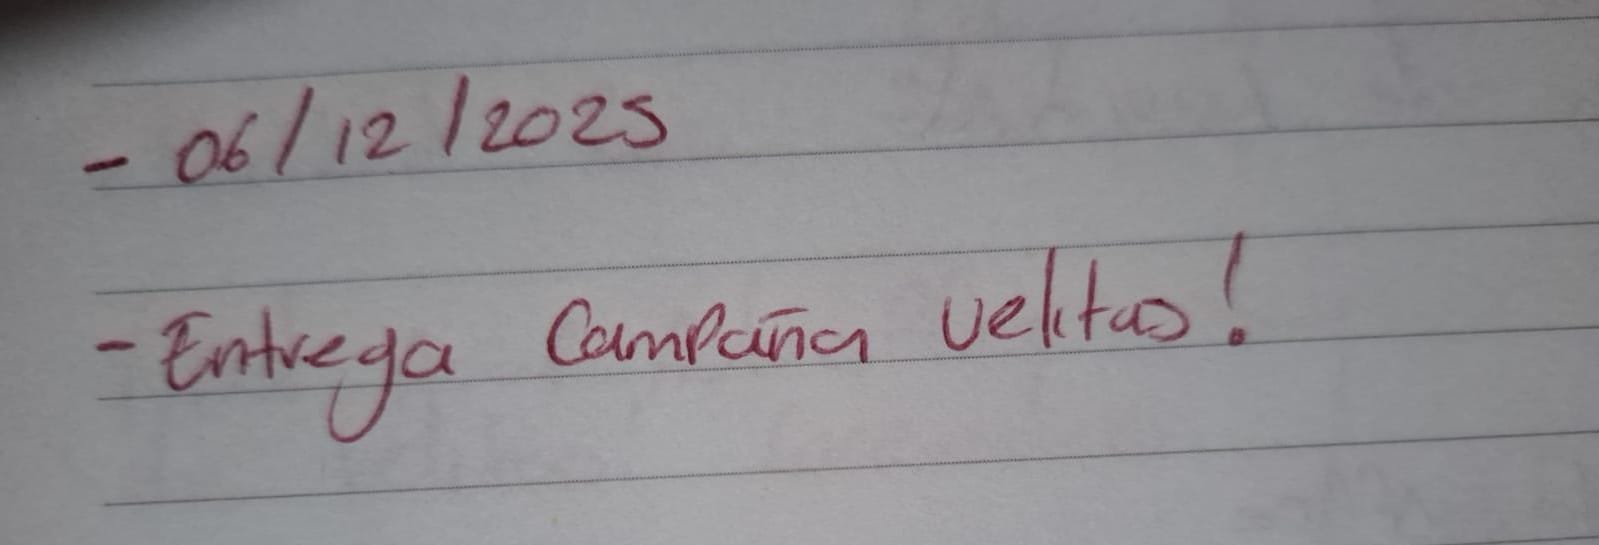 - 06/12/2025
- Entrega Campaña velitas!